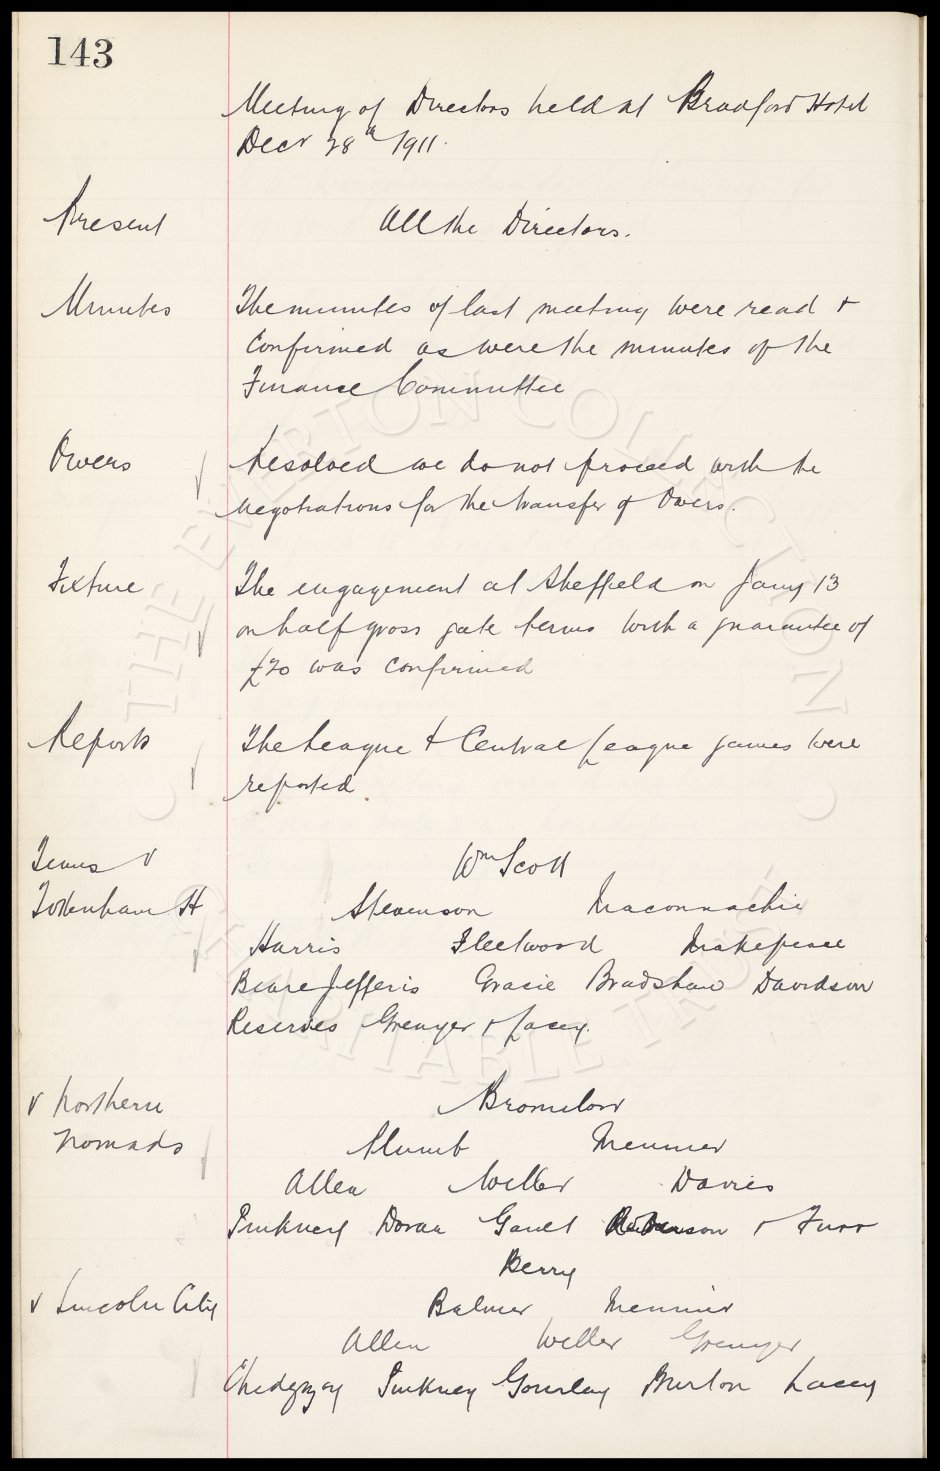 143
Meeting of Directors held at Bradford Hotel
Decr 28th 1911.
Present All the Directors.
Minutes The minutes of last meeting were read &
confirmed as were the minutes of the
Finance Committee
Owers Resolved we do not proceed with the
negotiations for the transfer of Owers.
Fixture The engagement at Sheffield on Jany 13
on half gross gate terms with a guarantee of
£20 was confirmed
Reports The League & Central League games were
reported.
Teams v Wm Scott
Tottenham H Stevenson Maconnachie
Harris Fleetwood Makepeace
Beare Jefferis Gracie Bradshaw Davidson
Reserves Grenyer & Lacey.
v Northern Bromilow
Nomads Plumb Meunier
Allen Weller Davies
Pinkney Doran Gault Robinson & Turr
Berry
v Lincoln City Balmer Meunier
Allen Weller Grenyer
Chedgzoy Pinkney Gourlay Burton Lacey
THE EVERTON COLLECTION
CHARITABLE TRUST